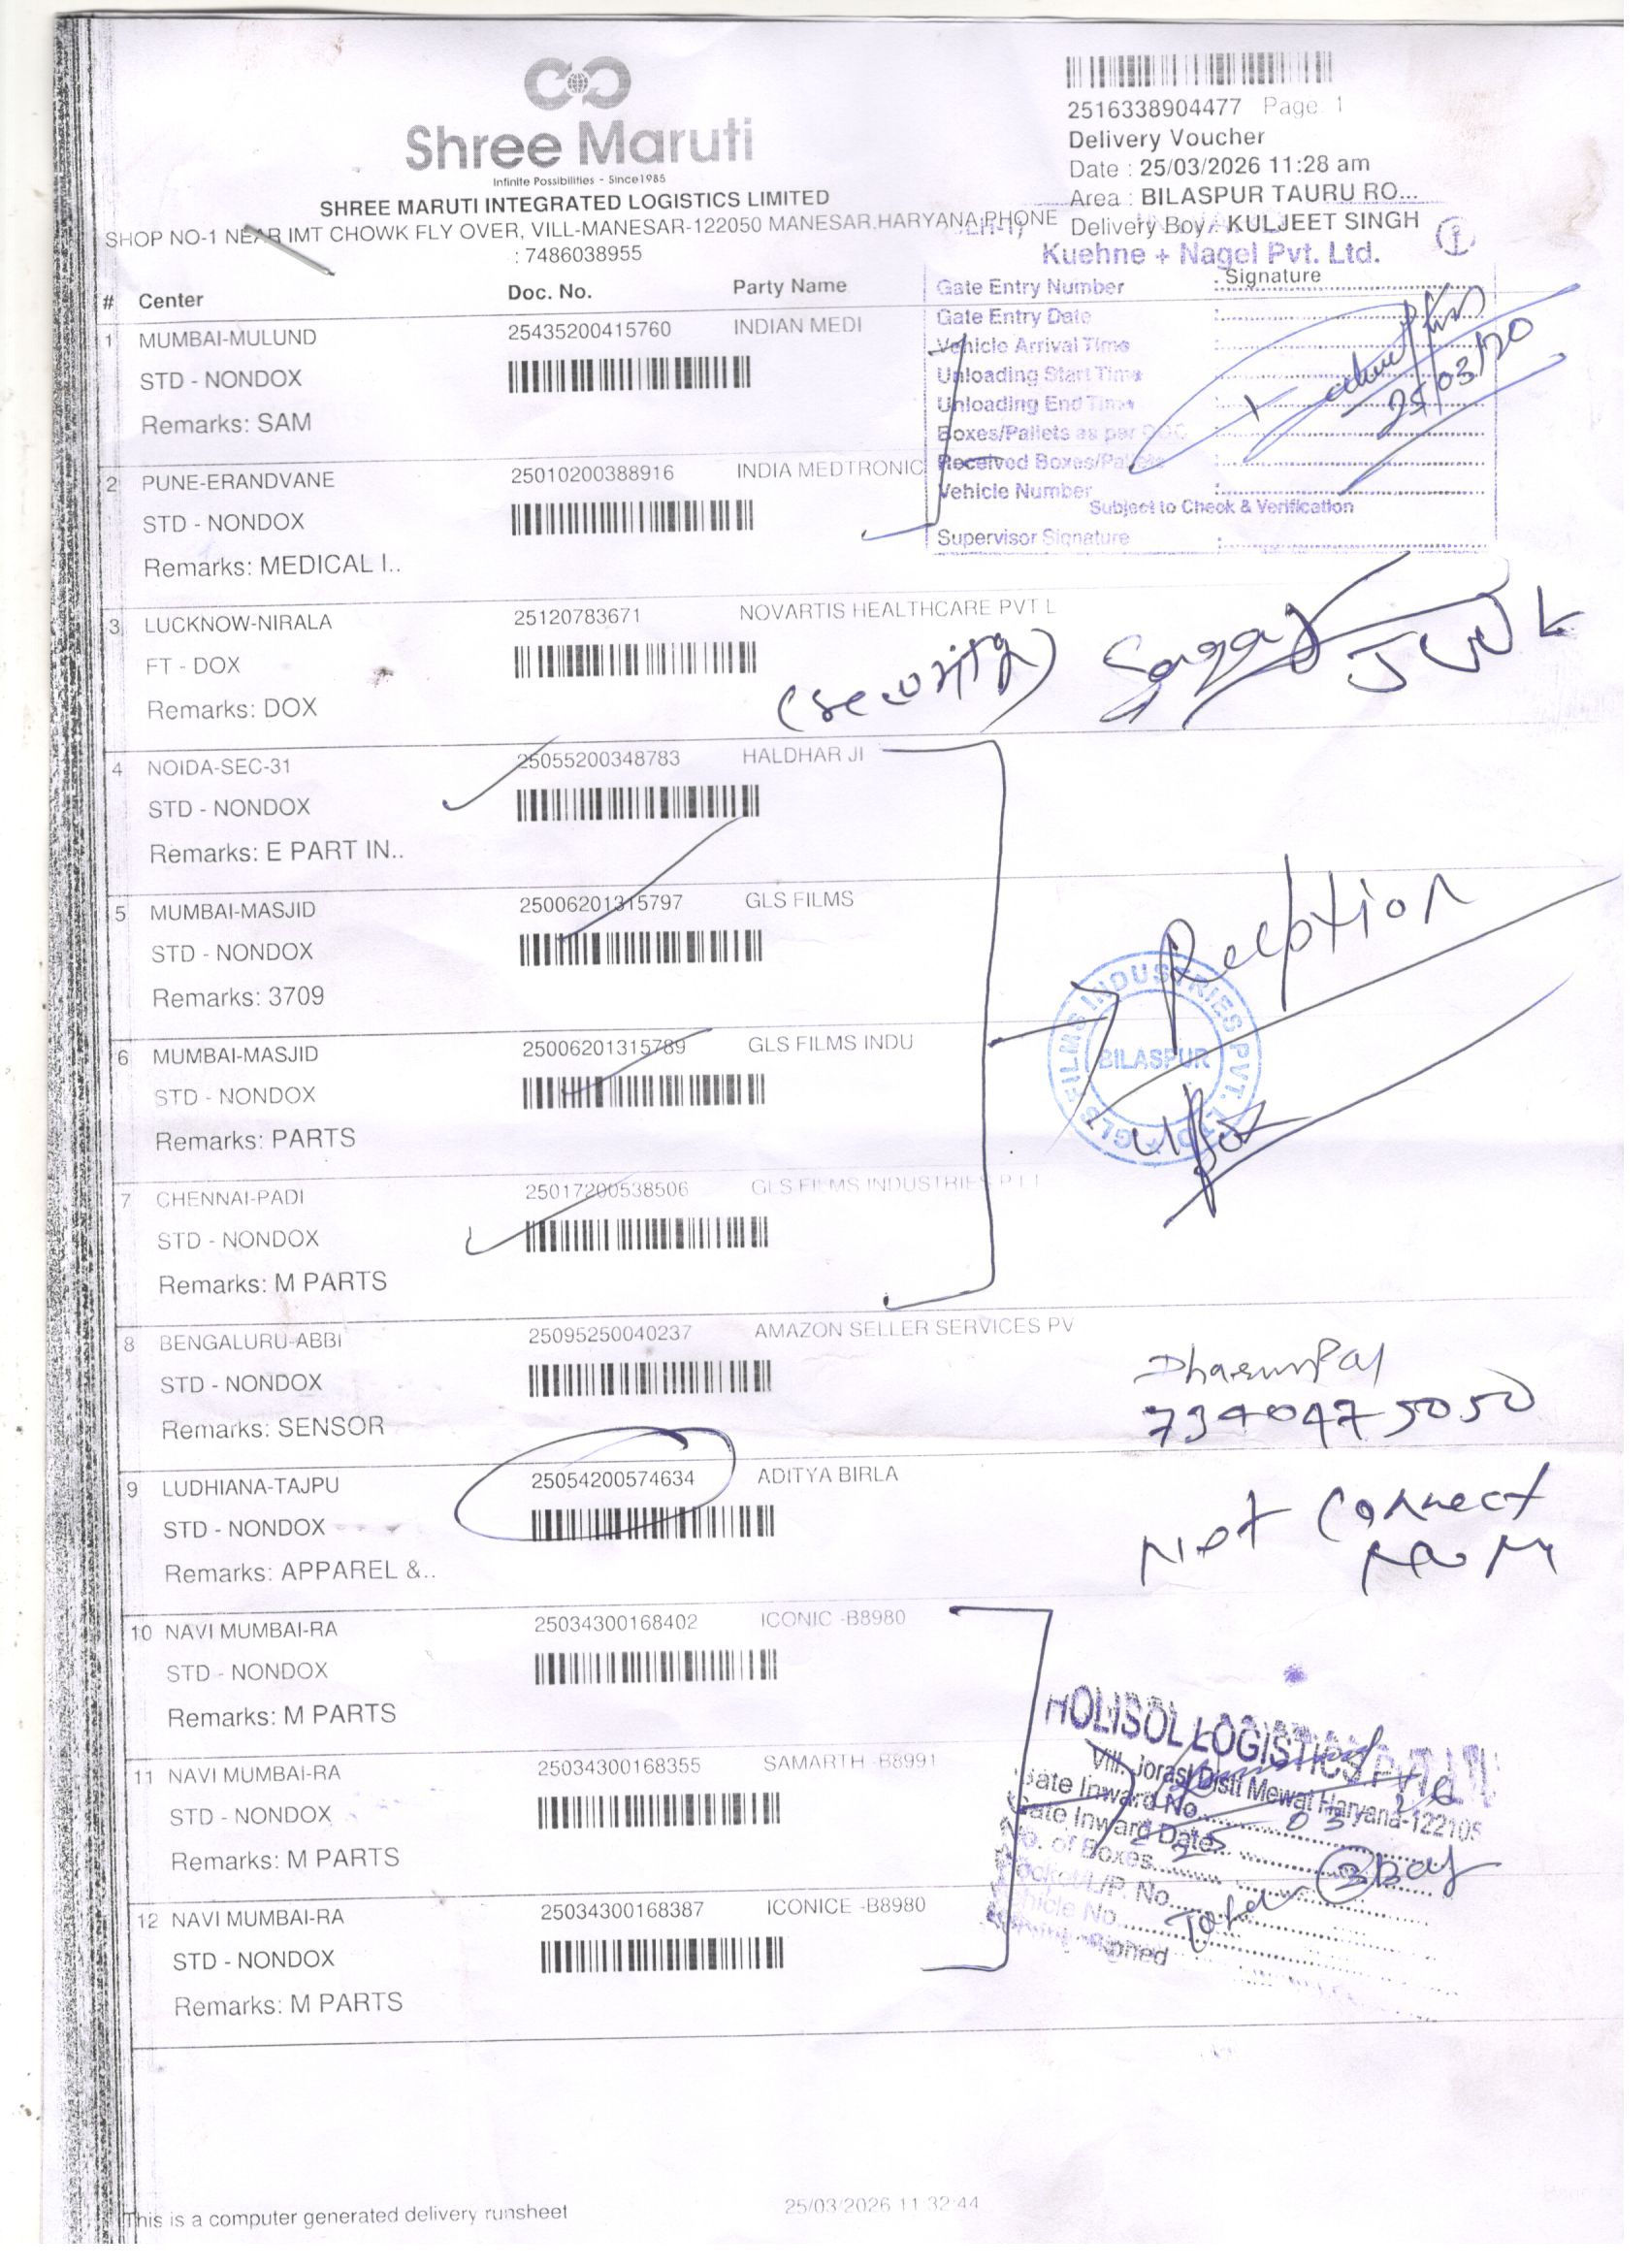 2516338904477 Page: 1
Shree Maruti
Infinite Possibilities - Since1985
Delivery Voucher
Date : 25/03/2026 11:28 am
SHREE MARUTI INTEGRATED LOGISTICS LIMITED
Area : BILASPUR TAURU RO...
SHOP NO-1 NEAR IMT CHOWK FLY OVER, VILL-MANESAR-122050 MANESAR,HARYANA,PHONE
: 7486038955
Delivery Boy : KULJEET SINGH
Kuehne + Nagel Pvt. Ltd.
# Center Doc. No. Party Name Signature
Gate Entry Number
Gate Entry Date
Vehicle Arrival Time
Unloading Start Time
Unloading End Time
Boxes/Pallets as per DOC
Received Boxes/Pallets
Vehicle Number
Subject to Check & Verification
Supervisor Signature
25/03/20
1 MUMBAI-MULUND 25435200415760 INDIAN MEDI
STD - NONDOX
Remarks: SAM
2 PUNE-ERANDVANE 25010200388916 INDIA MEDTRONIC
STD - NONDOX
Remarks: MEDICAL I..
3 LUCKNOW-NIRALA 25120783671 NOVARTIS HEALTHCARE PVT L
FT - DOX
(security) Sagar
Remarks: DOX
4 NOIDA-SEC-31 25055200348783 HALDHAR JI
STD - NONDOX
Remarks: E PART IN..
5 MUMBAI-MASJID 25006201315797 GLS FILMS
STD - NONDOX
Reception
Remarks: 3709
6 MUMBAI-MASJID 25006201315789 GLS FILMS INDU
GLS FILMS INDUSTRIES PVT. LTD
BILASPUR
STD - NONDOX
Remarks: PARTS
7 CHENNAI-PADI 25017200538506 GLS FILMS INDUSTRIES P
STD - NONDOX
Remarks: M PARTS
8 BENGALURU-ABBI 25095250040237 AMAZON SELLER SERVICES PV
STD - NONDOX
Remarks: SENSOR
9 LUDHIANA-TAJPU 25054200574634 ADITYA BIRLA
STD - NONDOX
Not Connect
Remarks: APPAREL &..
10 NAVI MUMBAI-RA 25034300168402 ICONIC -B8980
STD - NONDOX
Remarks: M PARTS
HOLISOL LOGISTICS PVT. LTD.
Vill. Jorasi Distt Mewat Haryana-122105
Gate Inward No.
Gate Inward Date
No. of Boxes
Docket/L/P. No.
Vehicle No.
Signed
Total 3 Box
11 NAVI MUMBAI-RA 25034300168355 SAMARTH -B8991
STD - NONDOX
Remarks: M PARTS
12 NAVI MUMBAI-RA 25034300168387 ICONICE -B8980
STD - NONDOX
Remarks: M PARTS
This is a computer generated delivery runsheet 25/03/2026 11:32:44